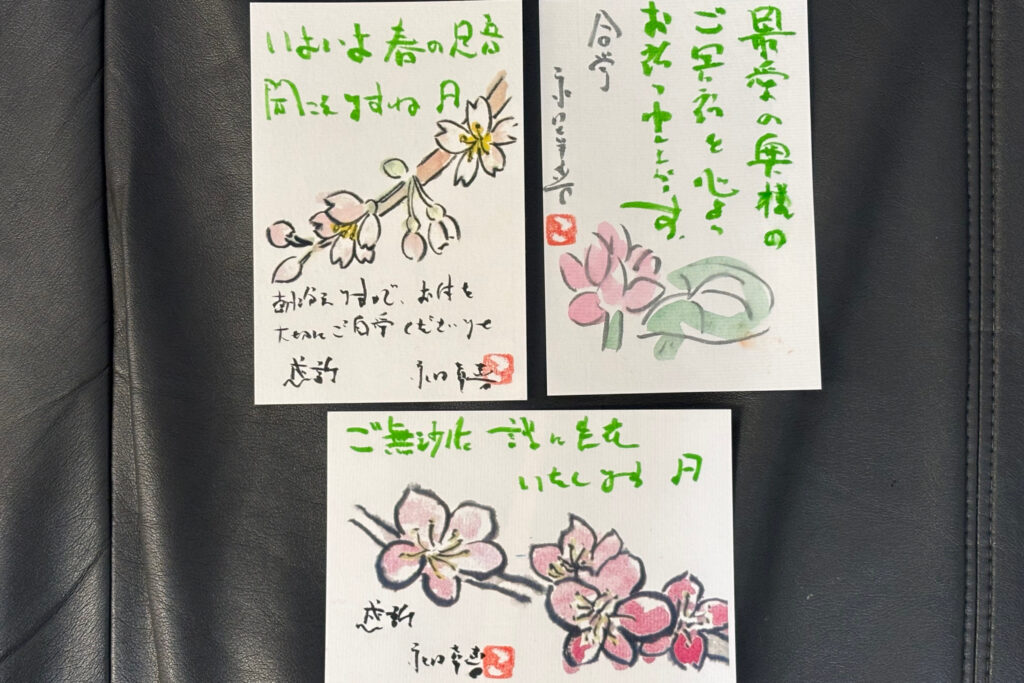 いよいよ春の足音
聞こえますね 月
朝冷えますので、お体を
大切にご自愛くださいませ
感謝
最愛の奥様の
ご冥福を心より
お祈り申し上げます。
合掌
ご無沙汰 誠に失礼
いたします 月
感謝